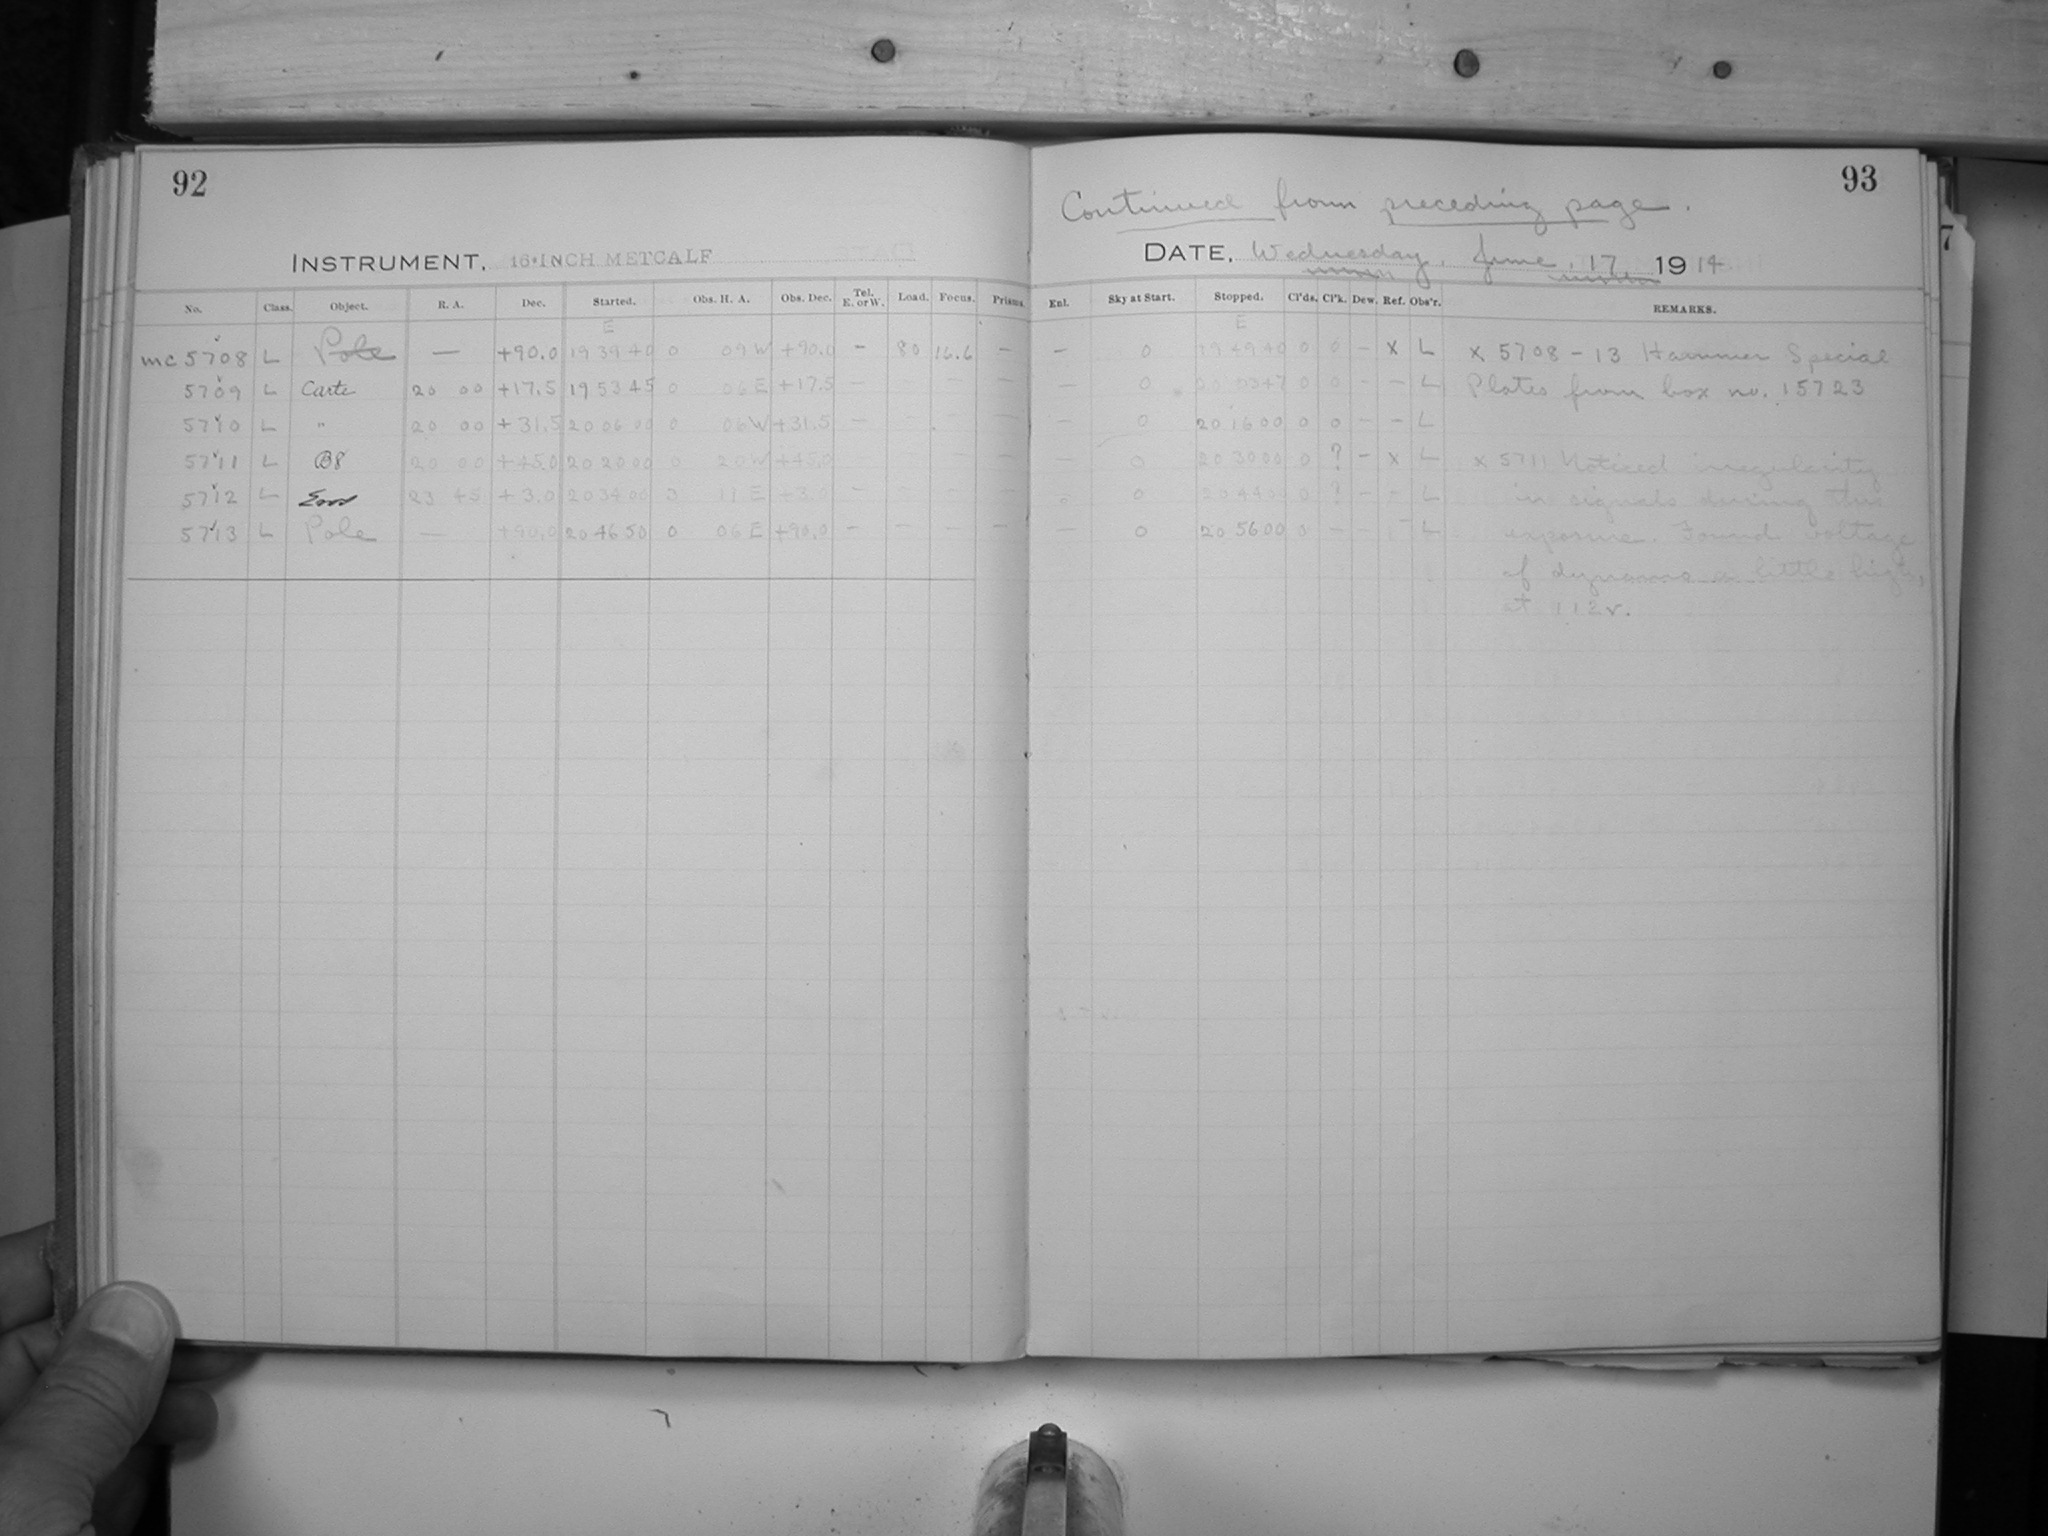 92
INSTRUMENT, 16-INCH METCALF
No. Class. Object. R. A. Dec. Started. Obs. H. A. Obs. Dec. Tel. E. or W. Load. Focus. Prisms.
E
mc 5708 L Pole — +90.0 19 39 40 0 09 W +90.0 – 80 16.6 –
5709 L Carte 20 00 +17.5 19 53 45 0 06 E +17.5 – – –
5710 L " 20 00 +31.5 20 06 00 0 06 W +31.5 – –
5711 L B8 20 00 +45.0 20 20 00 0 20 W +45.0
5712 L 23 45 +3.0 20 34 00 3 11 E +3.0 –
5713 L Pole — +90.0 20 46 50 0 06 E +90.0 – – – – –
93
Continued from preceding page.
DATE, Wednesday, June, 17 1914
Enl. Sky at Start. Stopped. Cl'ds. Cl'k. Dew. Ref. Obs'r. REMARKS.
E
– 0 19 49 40 0 0 – x L x 5708 – 13 Hammer Special
– 0 20 03 47 0 0 – – L Plates from box no. 15723
– 0 20 16 00 0 0 – – L
– 0 20 30 00 0 ? – x L x 5711 Noticed irregularity
0 20 44 00 0 ? – – L in signals during this
– 0 20 56 00 0 – – – L exposure. Found voltage
of dynamo a little high,
at 112v.
7